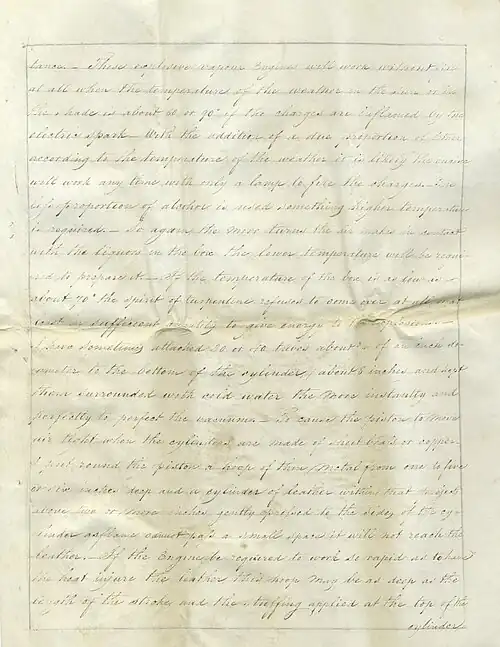 tance.— These explosive vapour Engines will work without fire
at all when the temperature of the weather in the sun or in
the shade is about 80 or 90° if the charges are inflamed by the
electric spark— With the addition of a due proportion of Ether
according to the temperature of the weather it is likely the engine
will work any time with only a lamp to fire the charges— 
proportion of alcohol is used something higher temperature
is required.— So again the more turns the air makes in contact
with the liquors in the box the lower temperature will be requi
red to prepare it— If the temperature of the box is as low as
about 70° the spirit of turpentine refuses to come over at all
in sufficient quantity to give energy to the explosion—
I have sometimes attached 30 or 40 tubes about of an inch di
ameter to the bottom of the cylinder, about 8 inches and kept
them surrounded with cold water the more instantly and
perfectly to perfect the vacuum— To cause the piston to move
air tight when the cylinders are made of sheet brass or copper
I put round the piston a hoop of thin metal from one to five
or six inches deep and a cylinder of leather within that project
above two or more inches, gently pressed to the sides of the cy
linder as flame cannot pass a small space it will not reach the
leather.— If the Engine be required to work so rapid as to have
the heat injure the leather this hoop may be as deep as the
length of the stroke and the stuffing applied at the top of the
cylinder